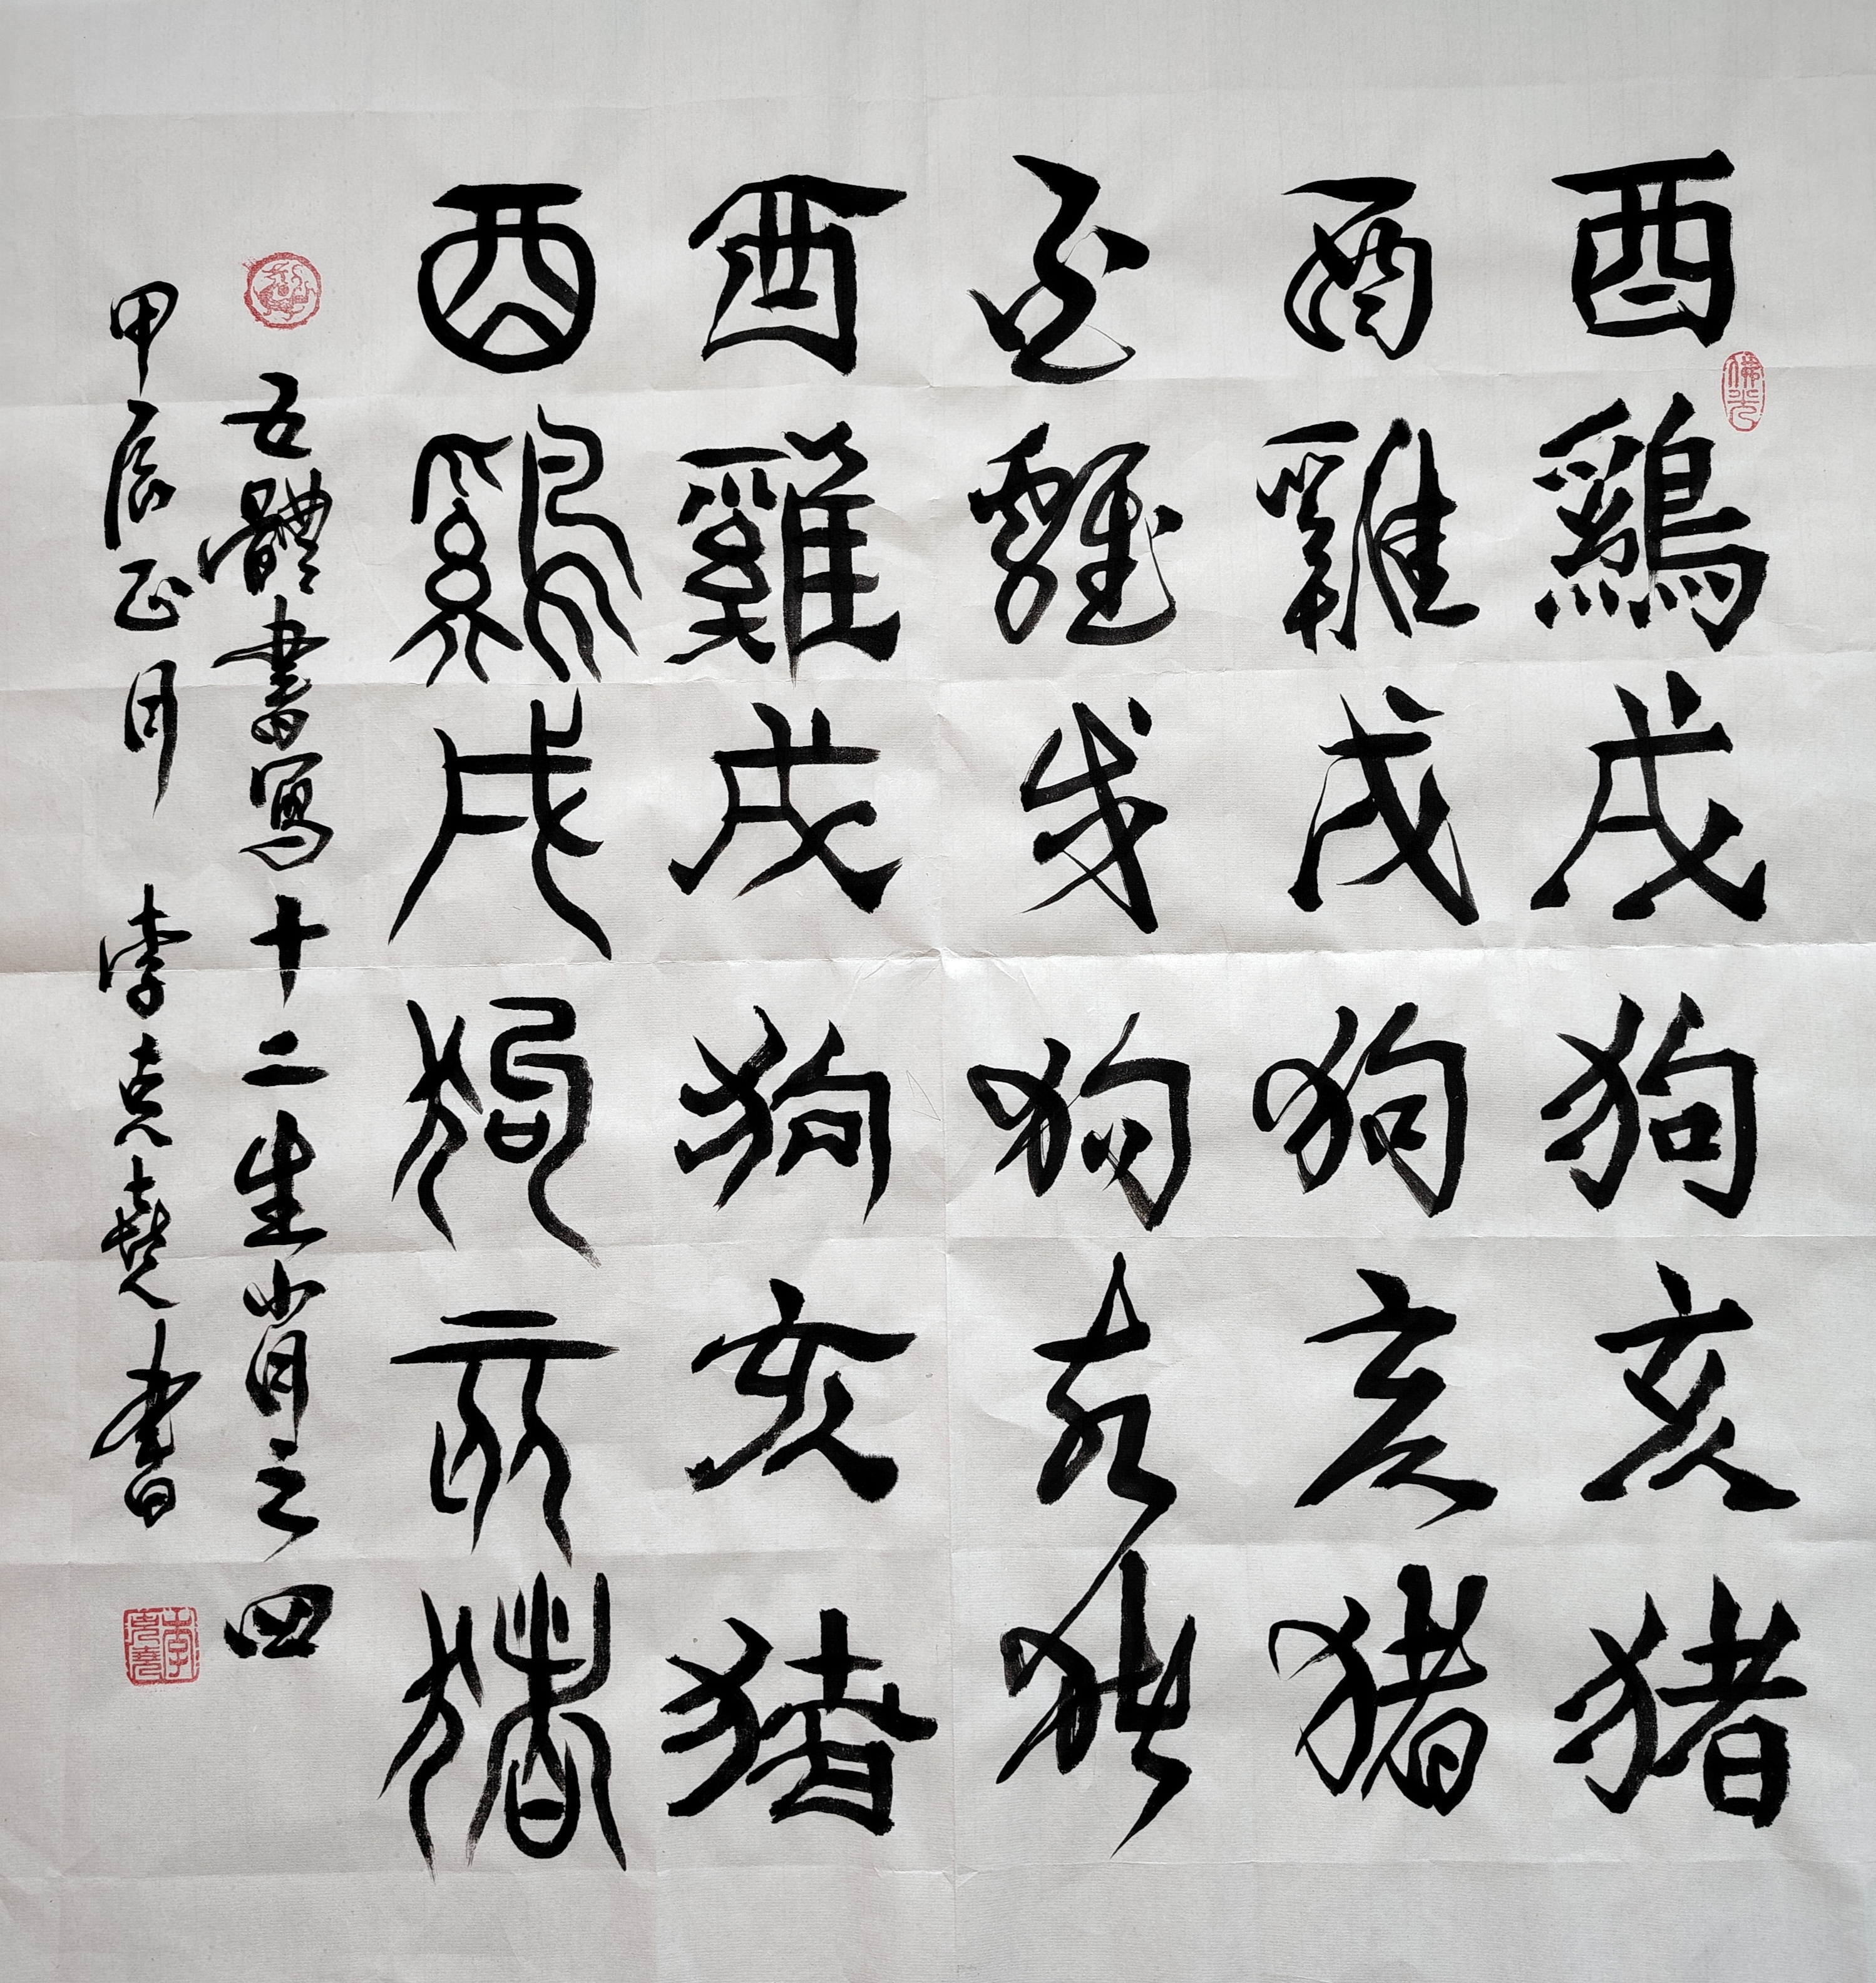 酉鷄戌狗亥猪
酉雞戌狗亥猪
酉雞戌狗亥猪
酉雞戌狗亥猪
酉鷄戌狗亥猪
五體書寫十二生肖之四
甲辰正月 李克堯書
佛光
李克堯